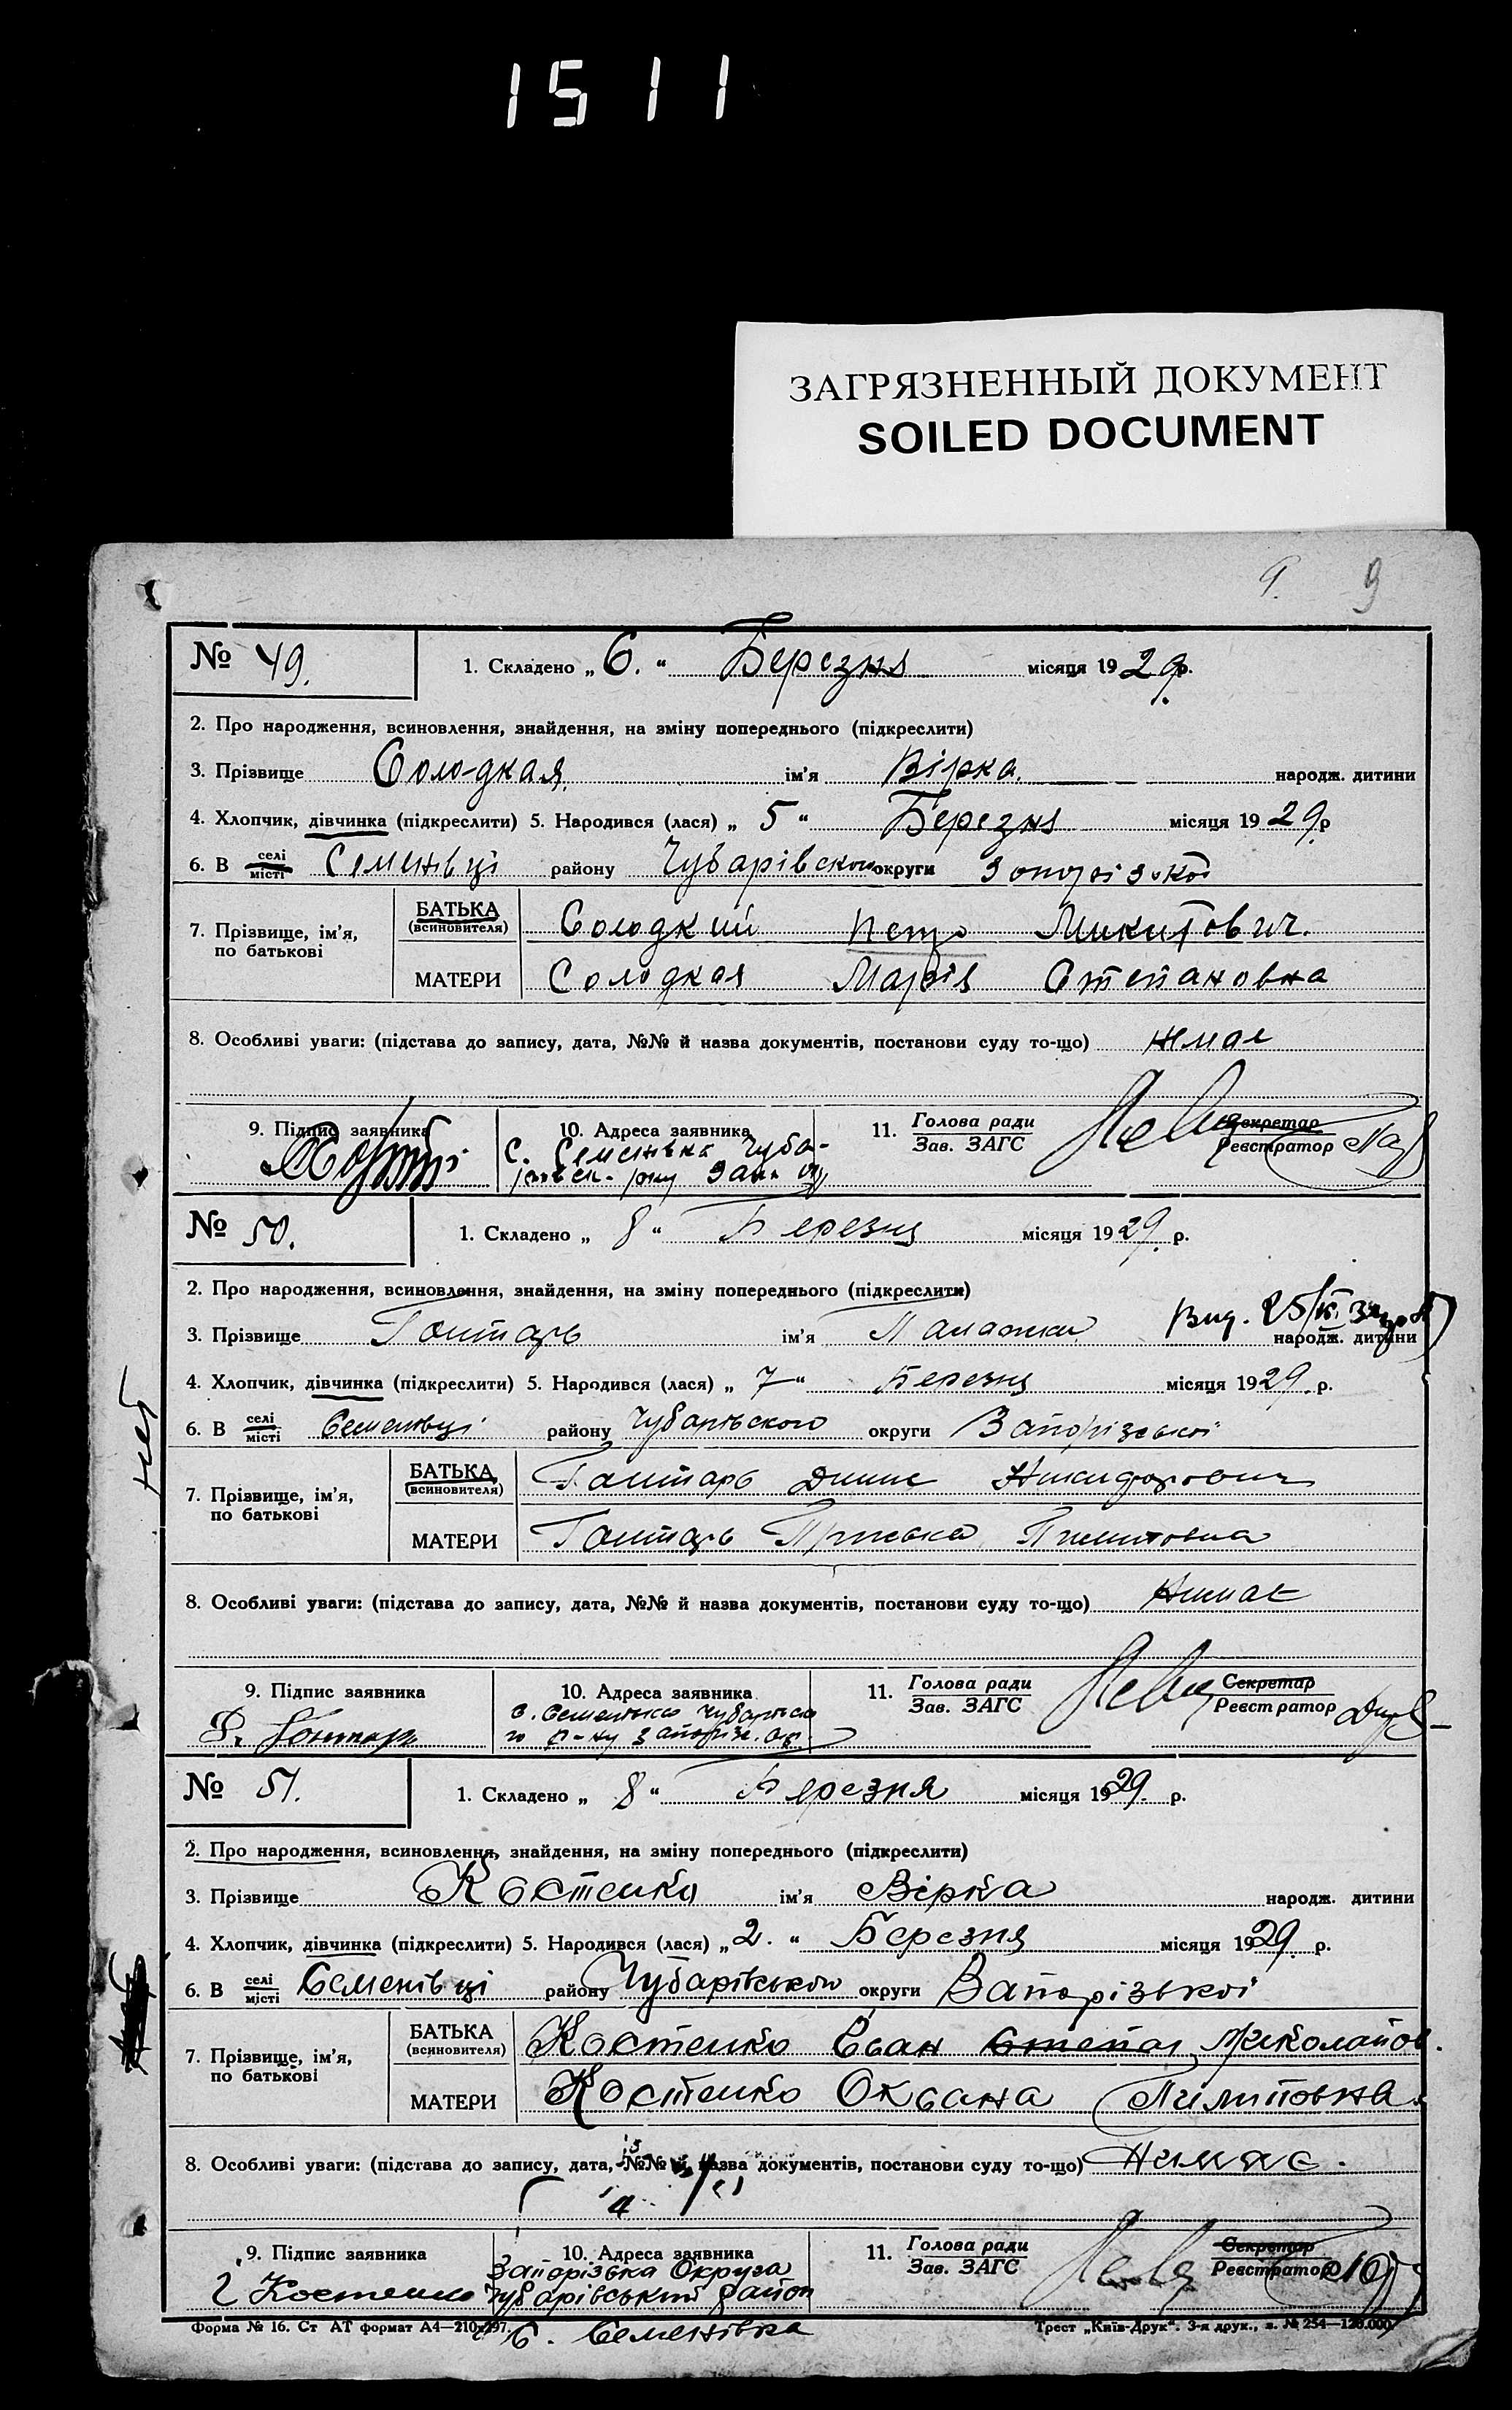 1511
ЗАГРЯЗНЕННЫЙ ДОКУМЕНТ
SOILED DOCUMENT
9. 9
№ 49. 1. Складено „ 6. “ Березня місяця 1929 р.
2. Про народження, всиновлення, знайдення, на зміну попереднього (підкреслити)
3. Прізвище Солодкая ім'я Вірка. народж. дитини
4. Хлопчик, дівчинка (підкреслити) 5. Народився (лася) „ 5 “ Березня місяця 1929 р
6. В селі/місті Семенівці району Чубарівского округи Запорізької
7. Прізвище, ім'я, по батькові
БАТЬКА (всиновителя) Солодкий Петро Микитович.
МАТЕРИ Солодкая Марія Степановна
8. Особливі уваги: (підстава до запису, дата, №№ й назва документів, постанови суду то-що) Немає
9. Підпис заявника 10. Адреса заявника 11. Голова ради/Зав. ЗАГС Секретар/Реєстратор
с. Семенівка Чуба-
рівск. р-ну Зап. окр
№ 50. 1. Складено „ 8 “ Березня місяця 1929. р.
2. Про народження, всиновлення, знайдення, на зміну попереднього (підкреслити)
3. Прізвище Гонтарь ім'я Палажка народж. дитини
Вид. 25/ІХ
4. Хлопчик, дівчинка (підкреслити) 5. Народився (лася) „ 7 “ Березня місяця 1929. р.
6. В селі/місті Семенівці району Чубарівського округи Запорізської
7. Прізвище, ім'я, по батькові
БАТЬКА (всиновителя) Гонтарь Никифорович
МАТЕРИ Гонтарь Пилиповна
8. Особливі уваги: (підстава до запису, дата, №№ й назва документів, постанови суду то-що) Немає
9. Підпис заявника 10. Адреса заявника 11. Голова ради/Зав. ЗАГС Секретар/Реєстратор
Гонтарь
с. Семенівка Чубарівсько
го р-ну Запоріж. окр.
№ 51. 1. Складено „ 8 “ Березня місяця 1929. р.
2. Про народження, всиновлення, знайдення, на зміну попереднього (підкреслити)
3. Прізвище Костенко ім'я Вірка народж. дитини
4. Хлопчик, дівчинка (підкреслити) 5. Народився (лася) „ 2. “ Березня місяця 1929. р.
6. В селі/місті Семенівці району Чубарівського округи Запорізької
7. Прізвище, ім'я, по батькові
БАТЬКА (всиновителя) Костенко Іван Степан Миколайов.
МАТЕРИ Костенко Оксана Пилиповна
8. Особливі уваги: (підстава до запису, дата, №№ й назва документів, постанови суду то-що) Немає.
9. Підпис заявника 10. Адреса заявника 11. Голова ради/Зав. ЗАГС Секретар/Реєстратор
Костенко
Запорізька Округа
Чубарівський район
с. Семенівка
Форма № 16. Ст АТ формат А4—210×297.
Трест „Київ-Друк“. 3-я друк., з. № 254—120.000.